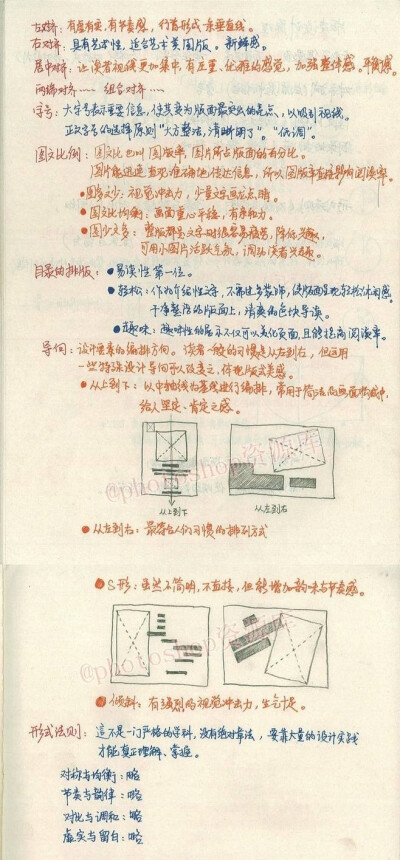 左对齐：有虚有实，有节奏感，行首形式一条垂直线。
右对齐：具有艺术性，适合艺术类图版。新鲜感。
居中对齐：让读者视线更加集中，有庄重、优雅的感觉，加强整体感。平衡感。
两端对齐…… 组合对齐……
字号：大字号表示重要信息，使其变为版面最突出的亮点，以吸引视线。
正文字号的选择原则"大方整洁，清晰明了"。"低调"。
图文比例：图文比也叫图版率，图片所占版面的百分比。
图片能迅速直观准确地传达信息，所以图版率直接影响阅读率。
●图多文少：视觉冲击力，少量文字画龙点睛。
●图文比均衡：画面重心平稳，有亲和力。
●图少文多：整版都是文字时很容易疲劳，降低兴趣，
可用小图片活跃气氛，调动读者兴趣。
目录的排版：●易读性第一位。
●轻松：作为介绍性文字，不需过多装饰，使版面呈现轻松休闲感。
干净整洁的版面上，清爽的色块导读。
●趣味：趣味性的展示不仅可以美化页面，且能提高阅读率。
导向：设计要素的编排方向。读者一般的习惯是从左到右，但运用
一些特殊设计导向可以改变之，体现版式美感。
●从上到下：以中轴线为基线进行编排，常用于简洁的画面构成中，
给人坚定、肯定之感。
@photoshop资源库
从上到下 从左到右
●从左到右：最符合人们习惯的排列方式
●S形：虽然不简明，不直接，但能增加韵味与节奏感。
@photoshop资源库
●倾斜：有强烈的视觉冲击力，生气十足。
形式法则：这不是一门严格的学科，没有绝对章法，要靠大量的设计实践
才能真正理解、掌握。
对称与均衡：略
节奏与韵律：略
对比与调和：略
虚实与留白：略